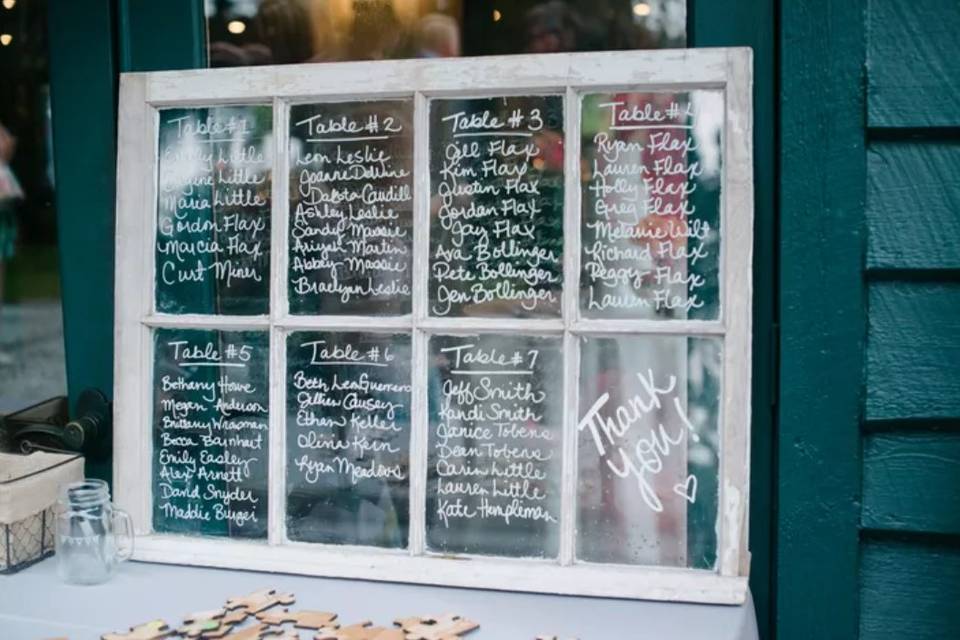 Table #1
Emily Little
Eugene Little
Maria Little
Gordon Flax
Marcia Flax
Curt Miner
Table #2
Leon Leslie
Joanne DeWine
Dakota Caudill
Ashley Leslie
Sandy Massie
Ariyah Martin
Abbey Massie
Braelyn Leslie
Table #3
Gill Flax
Kim Flax
Justin Flax
Jordan Flax
Jay Flax
Ava Bollinger
Pete Bollinger
Jen Bollinger
Table #4
Ryan Flax
Lauren Flax
Holly Flax
Greg Flax
Melanie Wilt
Richard Flax
Peggy Flax
Lauren Flax
Table #5
Bethany Howe
Megan Anderson
Brittany
Becca Barnhart
Emily Easley
Alex Arnett
David Snyder
Maddie Burger
Table #6
Beth LeonGuerrero
Jillian Causey
Ethan Keller
Olivia Kern
Ryan Meadows
Table #7
Jeff Smith
Kandi Smith
Janice Tobens
Dean Tobens
Carin Little
Lauren Little
Kate Hempleman
Thank
you!